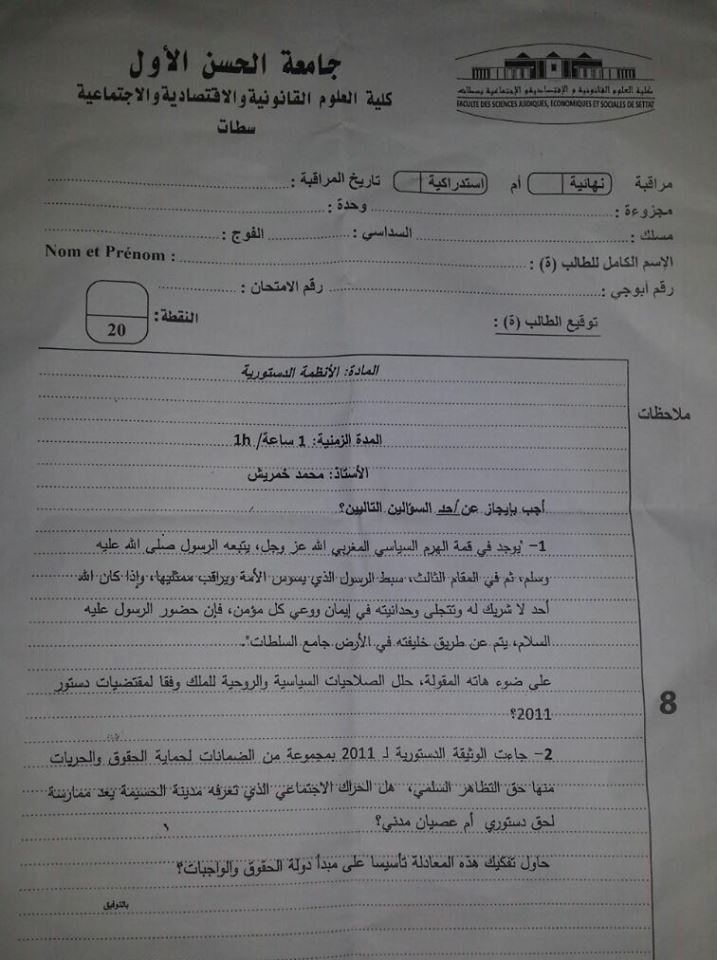 جامعة الحسن الأول
كلية العلوم القانونية والاقتصادية والاجتماعية
سطات
كلية العلوم القانونية و الإقتصادية و الإجتماعية بسطات
FACULTE DES SCIENCES JURIDIQUES, ECONOMIQUES ET SOCIALES DE SETTAT
مراقبة نهائية أم استدراكية تاريخ المراقبة :
مجزوءة : وحدة :
مسلك : السداسي : الفوج :
الإسم الكامل للطالب (ة) : Nom et Prénom :
رقم أبوجي : رقم الامتحان :
توقيع الطالب (ة) : النقطة : 20
ملاحظات
المادة: الأنظمة الدستورية
المدة الزمنية: 1 ساعة/ 1h
الأستاذ: محمد خمريش
أجب بإيجاز عن إحد السؤالين التاليين؟
1– "يوجد في قمة الهرم السياسي المغربي الله عز وجل، يتبعه الرسول صلى الله عليه
وسلم، ثم في المقام الثالث، سبط الرسول الذي يسوس الأمة ويراقب ممثليها، وإذا كان الله
أحد لا شريك له وتتجلى وحدانيته في إيمان ووعي كل مؤمن، فإن حضور الرسول عليه
السلام، يتم عن طريق خليفته في الأرض جامع السلطات".
على ضوء هاته المقولة، حلل الصلاحيات السياسية والروحية للملك وفقا لمقتضيات دستور
2011؟
8
2– جاءت الوثيقة الدستورية لـ 2011 بمجموعة من الضمانات لحماية الحقوق والحريات
منها حق التظاهر السلمي، هل الحراك الاجتماعي الذي تعرفه مدينة الحسيمة يعد ممارسة
لحق دستوري أم عصيان مدني؟
حاول تفكيك هذه المعادلة تأسيسا على مبدأ دولة الحقوق والواجبات؟
بالتوفيق